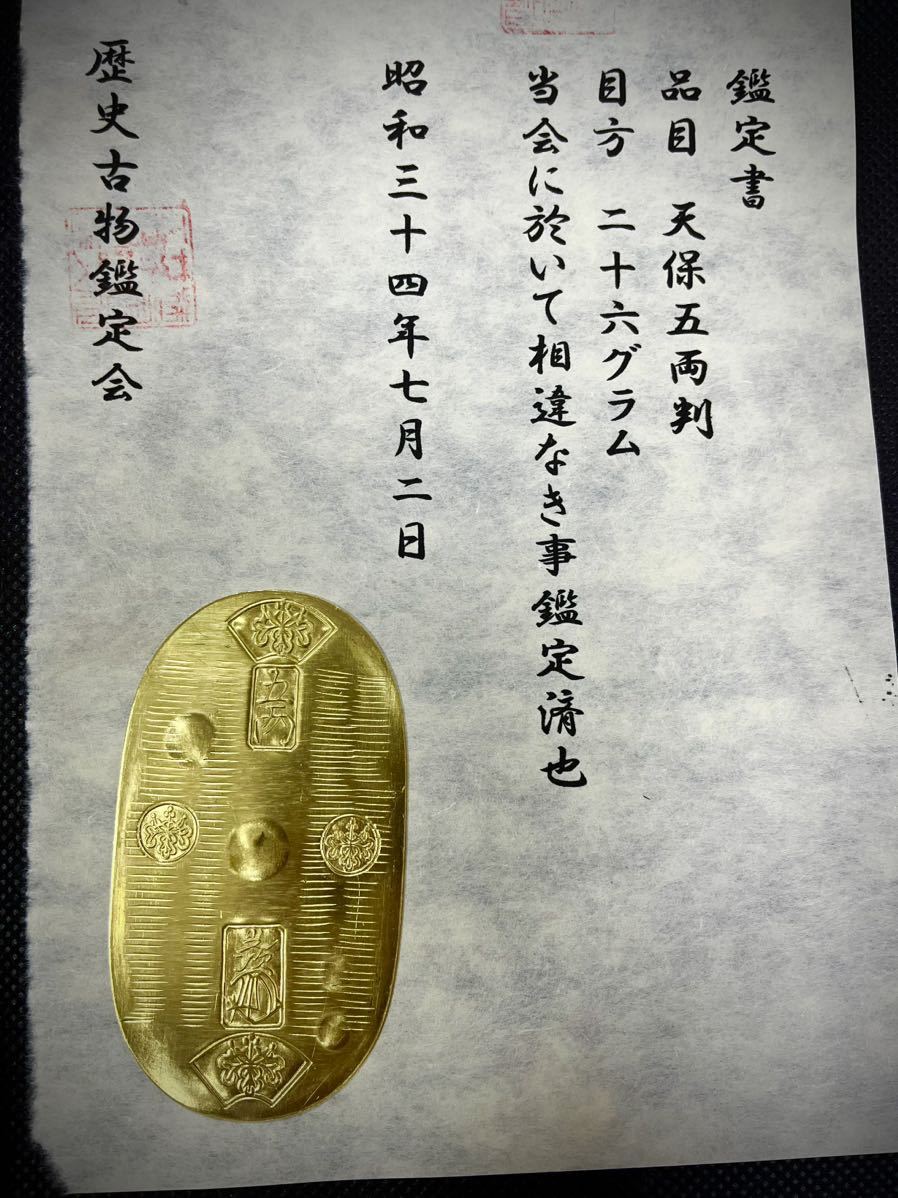 鑑定書
品目　天保五両判
目方　二十六グラム
当会に於いて相違なき事鑑定済也
昭和三十四年七月二日
歴史古物鑑定会
五両